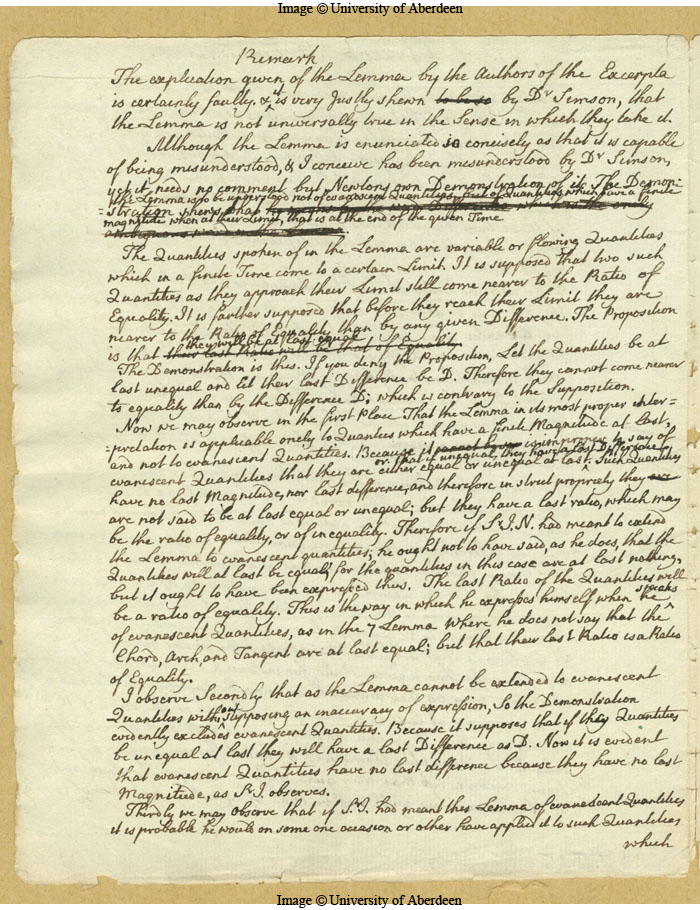 Image © University of Aberdeen
Remark
The explication given of the Lemma by the Authors of the Excerpta
is certainly faulty. & it is very Justly shewn to be so by Dr Simson, that
the Lemma is not universally true in the Sense in which they take it.
Although the Lemma is enunciated so concisely as that it is capable
of being misunderstood, & I conceive has been misunderstood by Dr Simson,
yet it needs no comment but Newtons own Demonstration of it. The Demon=
the Lemma is to be understood not of evanescent Quantities, but of Quantities which have a finite
=stration shews that
magnitude when at their Limit, that is at the end of the given Time
The Quantities spoken of in the Lemma are variable or flowing Quantities
which in a finite Time come to a certain Limit. It is supposed that two such
Quantities as they approach their Limit still come nearer to the Ratio of
Equality. It is farther supposed that before they reach their Limit they are
nearer to the Ratio of Equality than by any given Difference. The Proposition
they will be at last equal
is that their last Ratio will be that of Equality
The Demonstration is this. If you deny the Proposition, Let the Quantities be at
last unequal and let their last Difference be D. Therefore they cannot come nearer
to equality than by the Difference D; which is contrary to the Supposition.
Now we may observe in the first place That the Lemma in its most proper inter=
=pretation is applicable onely to Quantities which have a finite Magnitude at Last,
and not to evanescent Quantities. Because it is improper to say of
or that if unequal, they have a Last Difference
evanescent Quantities that they are either equal or unequal at last. Such Quantitys
have no last Magnitude, nor last difference, and therefore in strict propriety they
are not said to be at last equal or unequal; but they have a last ratio, which may
be the ratio of equality, or of inequality. Therefore if Sr I. N. had meant to extend
the Lemma to evanescent quantities; he ought not to have said, as he does, that the
Quantities will at last be equal, for the quantities in this case are at last nothing,
but it ought to have been expressed thus. The last Ratio of the Quantities will
be a ratio of equality. This is the way in which he expresses himself when he speaks
of evanescent Quantities, as in the 7 Lemma where he does not say that the
Chord, Arch, and Tangent are at last equal; but that their last Ratio is a Ratio
of Equality.
I observe Secondly that as the Lemma cannot be extended to evanescent
Quantities without supposing an inaccuracy of expression, So the Demonstration
evidently excludes evanescent Quantities. Because it supposes that if they Quantities
be unequal at last they will have a last Difference as D. Now it is evident
that evanescent Quantities have no last difference because they have no last
Magnitude, as Sr I. observes.
Thirdly we may observe that if Sr I. had meant this Lemma of evanescent Quantities
it is probable he would on some one occasion or other have applied it to such Quantities
which
Image © University of Aberdeen